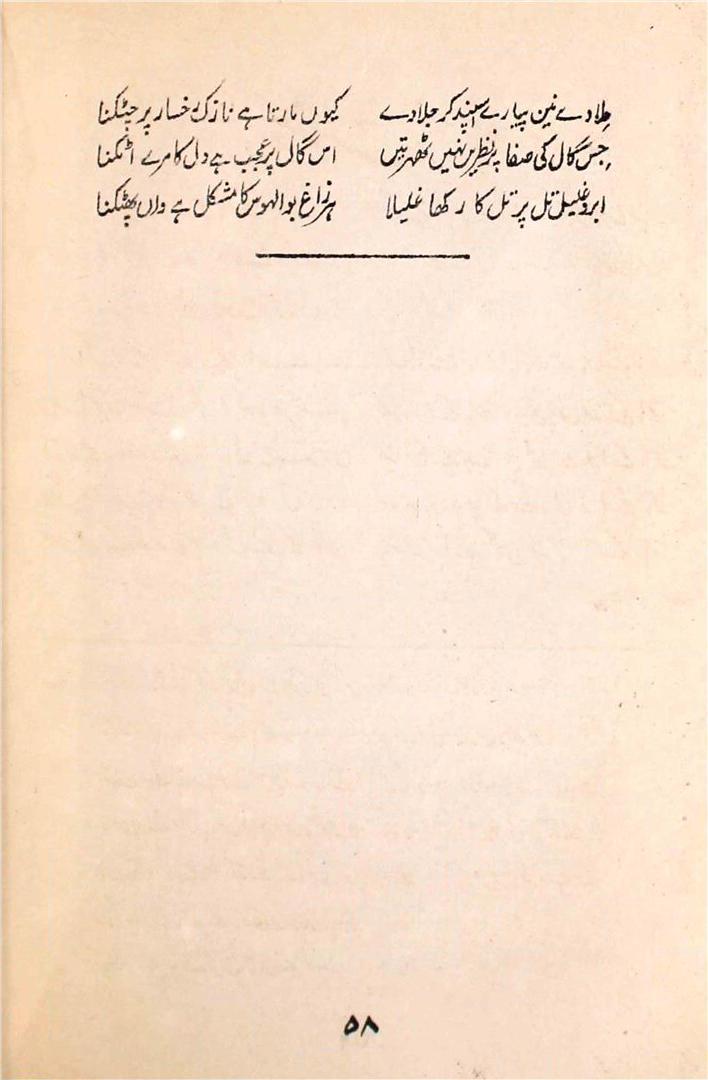 جلا دے نین پیارے سپند کر جلا دے کیوں مارتا ہے نازک رخسار پر چٹکنا
جس گال کی صفا پر نظریں نہیں ٹھہرتیں اس گال پر عجب ہے دل کا مرے اٹکنا
ابرو غلیل تل پر تل کا رکھا غلیلا ہر زاغ بوالہوس کا مشکل ہے واں پھٹکنا
۵۸